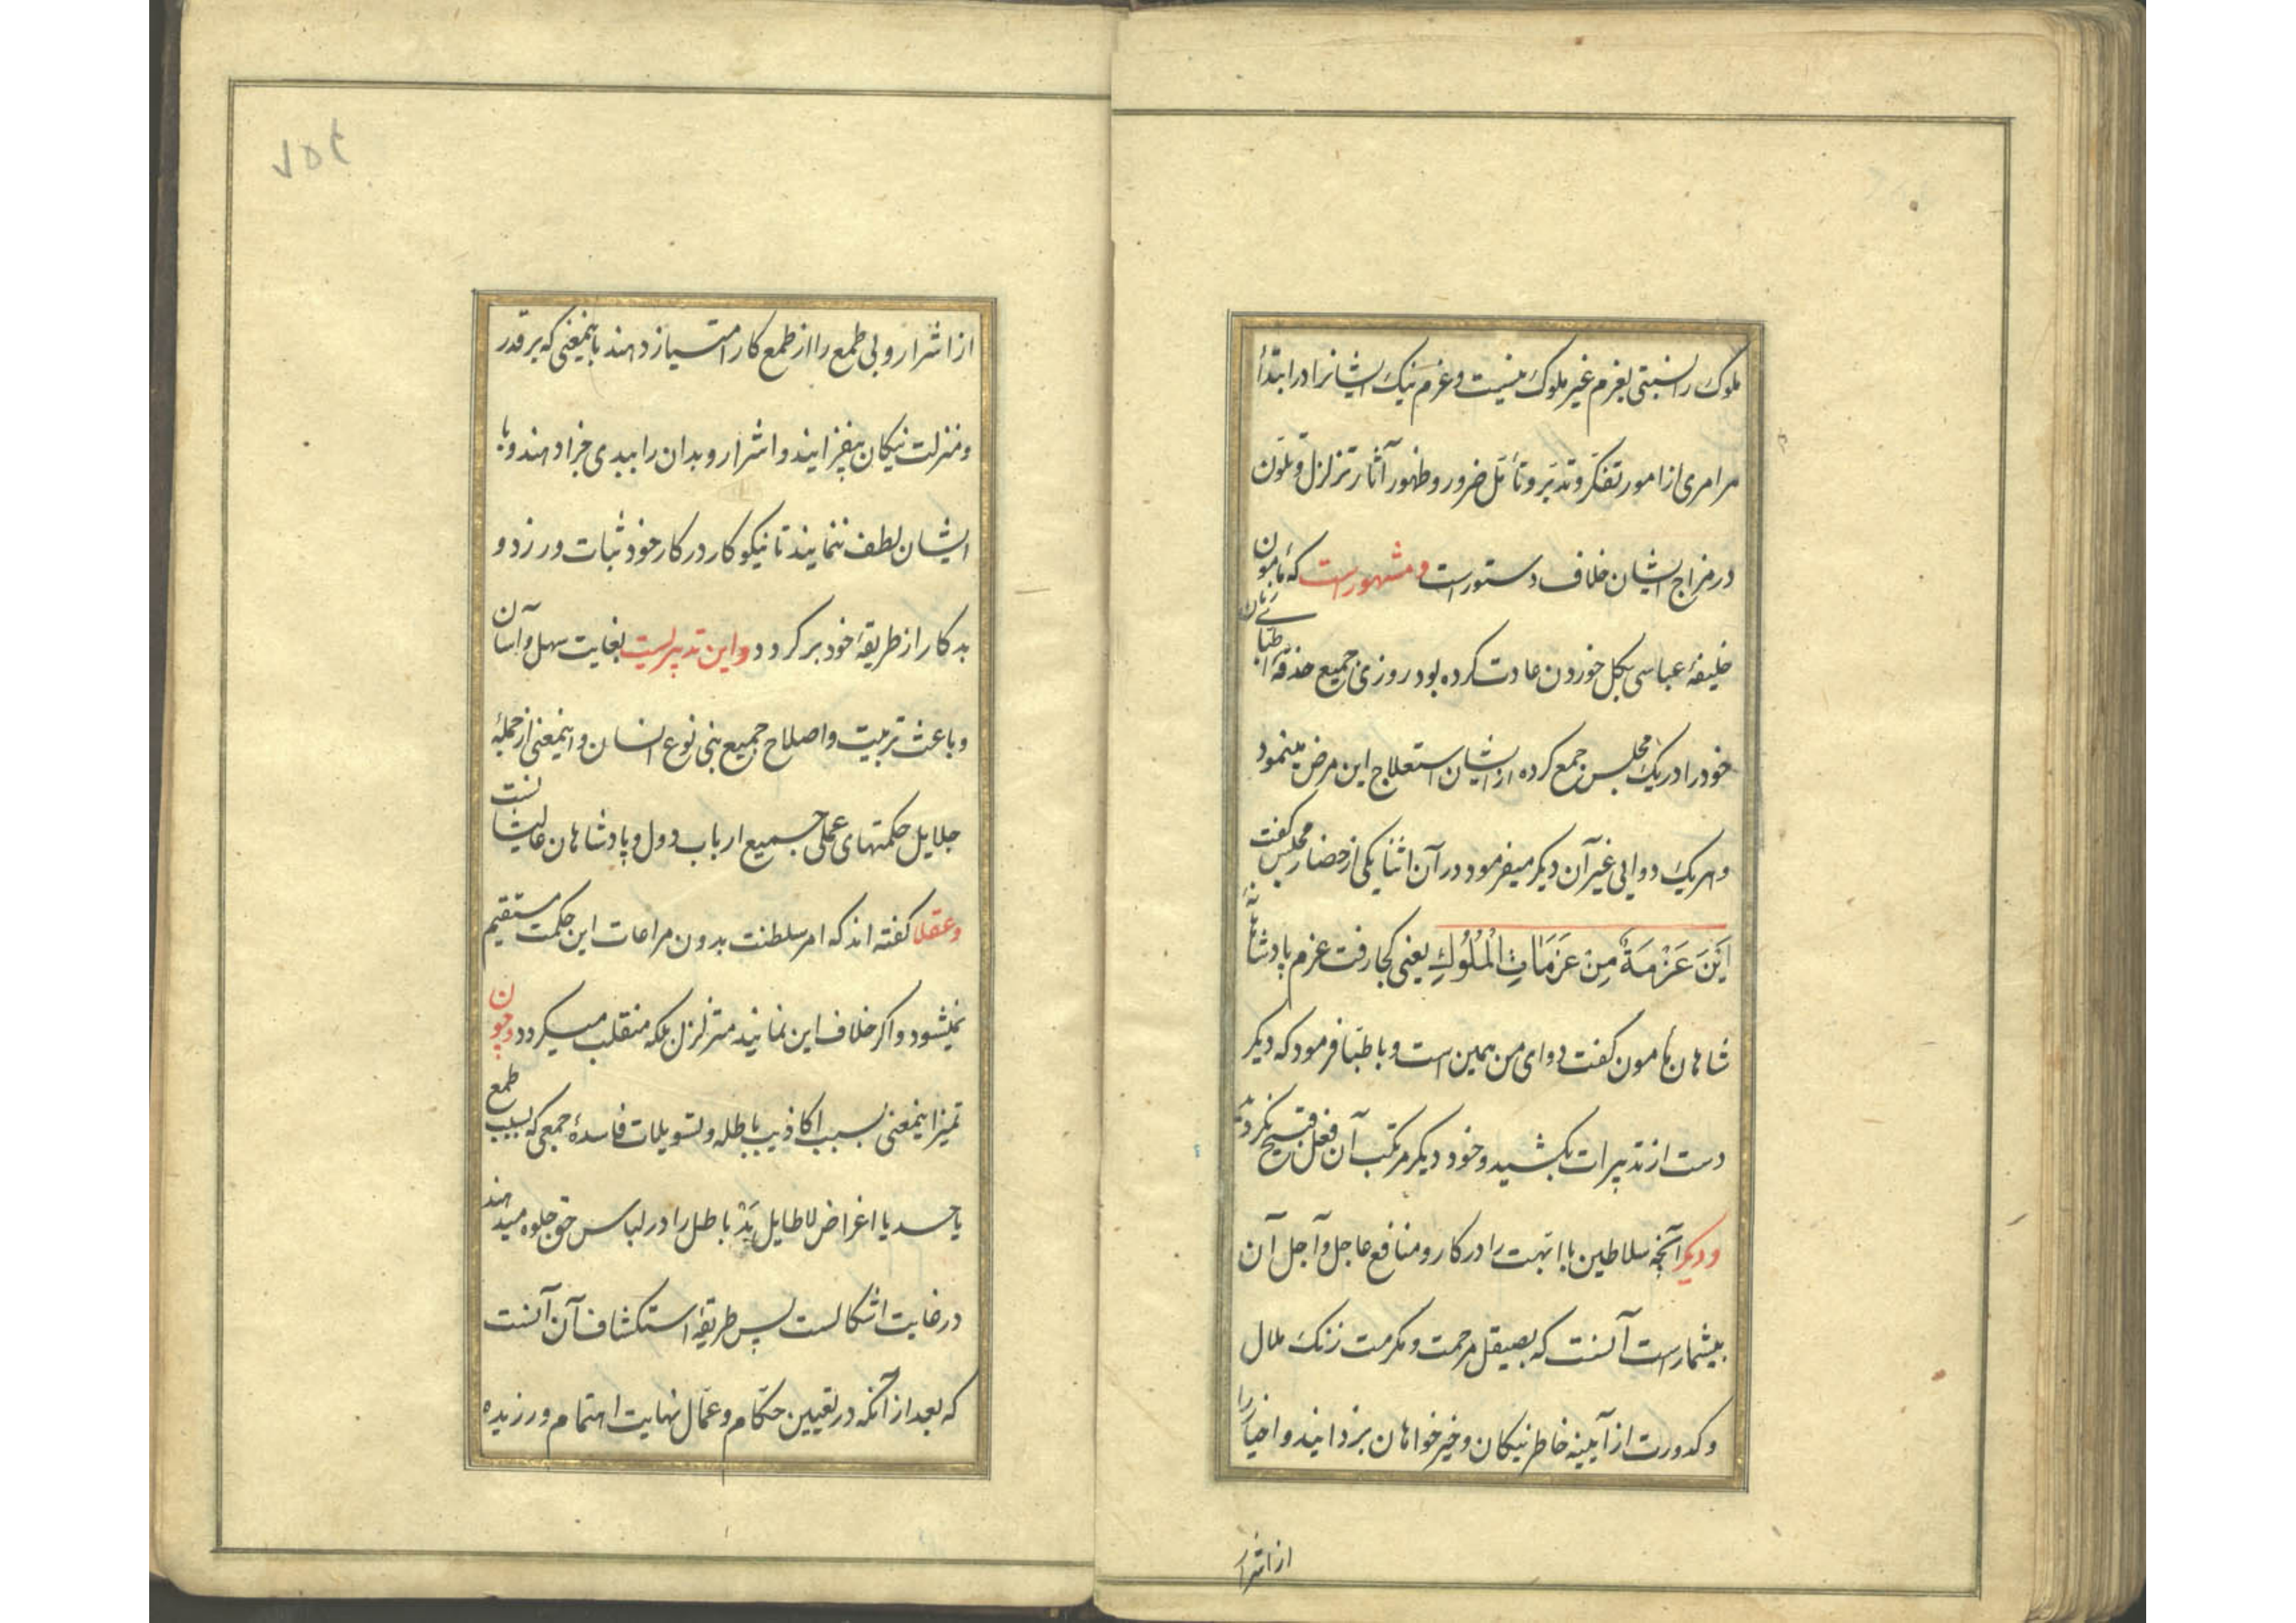 ملوک را نسبتی بعزم غیر ملوک نیست و عزم نیک ایشانرا در ابتدأ
هر امری از امور تفکّر و تدبّر و تأمّل ضرور و ظهور آثار تزلزل و تلوّن
در مزاج ایشان خلاف دستورست و مشهورست که مأمون
خلیفهٔ عباسی بگل خوردن عادت کرده بود روزی جمیع حذقهٔ اطبّای زمان
خود را در یک مجلس جمع کرده از ایشان استعلاج این مرض مینمود
و هر یک دوایی غیر آن دیگر میفرمود در آن اثنا یکی از حضار مجلس گفت
اَیْنَ عَزْمَةٌ مِنْ عَزَمَاتِ الْمُلُوكِ یعنی کجا رفت عزم پادشاهانهٔ
شاهان مامون گفت دوای من همین است و باطبّا فرمود که دیگر
دست از تدبیرات بکشید و خود دیگر مرتکب آن فعل قبیح نگردید
و دیگر آنچه سلاطین با ابّهت را در کار و منافع عاجل و آجل آن
بیشمارست آنست که بصیقل مرحمت و مکرمت زنک ملال
و کدورت از آیینه خاطر نیکان و خیرخواهان بزدایند و اخیار را
از اشرار
۷۵۴
از اشرار و بی طمع را از طمع کار امتیاز دهند باینمعنی که بر قدر
و منزلت نیکان بیفزایند و اشرار و بدان را ببدی جزا دهند و با
ایشان لطف ننمایند تا نیکوکار در کار خود ثبات ورزد و
بدکار از طریقهٔ خود برگردد و این تدبیریست بغایت سهل و آسان
و باعث تربیت و اصلاح جمیع بنی نوع انسان و اینمعنی از جملهٔ
جلایل حکمتهای عملی جمیع ارباب دول و پادشاهان عالیشانست
و عقلا گفته اند که امر سلطنت بدون مراعات این حکمت مستقیم
نمیشود و اگر خلاف این نمایند متزلزل بلکه منقلب میگردد و چون
تمیز اینمعنی بسبب اکاذیب باطله و تسویلات فاسدهٔ جمعی که بسبب طمع
یا حسد یا اغراض لاطایل بَدْ باطل را در لباس حق جلوه میدهند
در غایت اشکالست پس طریقهٔ استکشاف آن آنست
که بعد از آنکه در تعیین حکّام و عمّال نهایت اهتمام ورزیده